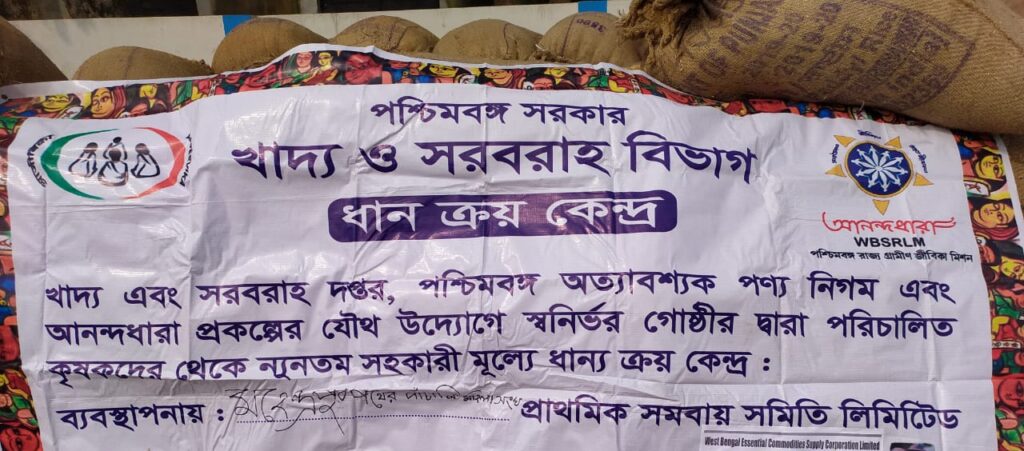 পশ্চিমবঙ্গ সরকার
খাদ্য ও সরবরাহ বিভাগ
ধান ক্রয় কেন্দ্র
আনন্দধারা
WBSRLM
পশ্চিমবঙ্গ রাজ্য গ্রামীণ জীবিকা মিশন
খাদ্য এবং সরবরাহ দপ্তর, পশ্চিমবঙ্গ অত্যাবশ্যক পণ্য নিগম এবং
আনন্দধারা প্রকল্পের যৌথ উদ্যোগে স্বনির্ভর গোষ্ঠীর দ্বারা পরিচালিত
কৃষকদের থেকে ন্যূনতম সহকারী মূল্যে ধান্য ক্রয় কেন্দ্র :
ব্যবস্থাপনায় : প্রাথমিক সমবায় সমিতি লিমিটেিড
West Bengal Essential Commodities Supply Corporation Limited